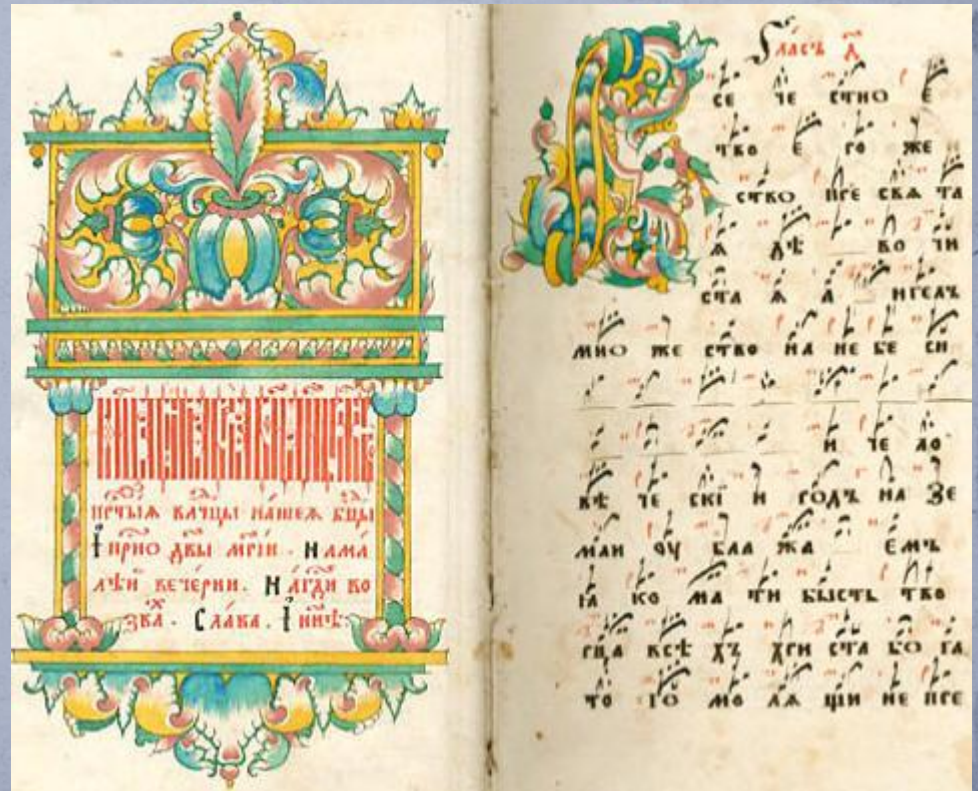 прⷭ҇тыѧ влⷣчцы нашеѧ бцⷣы
І приⷭно дв҃ы мр҃іи . На ма
лѣй вечерни . На гдⷭ҇и во
звⷯа . Слава . І ннѣ:
Гласъ д҃
В се че стно е
тво е ро же н
ство пре свѧ та
ѧ дѣ во чи
ста ѧ а нгелъ
мно же ство на не бе си
и че ло
вѣ че скї и родъ на зе
мли оу бла жа емъ
ꙗ ко ма ти бысть тво
рца всѣ хъ хри ста бо га
то го мо лѧ щи не пре